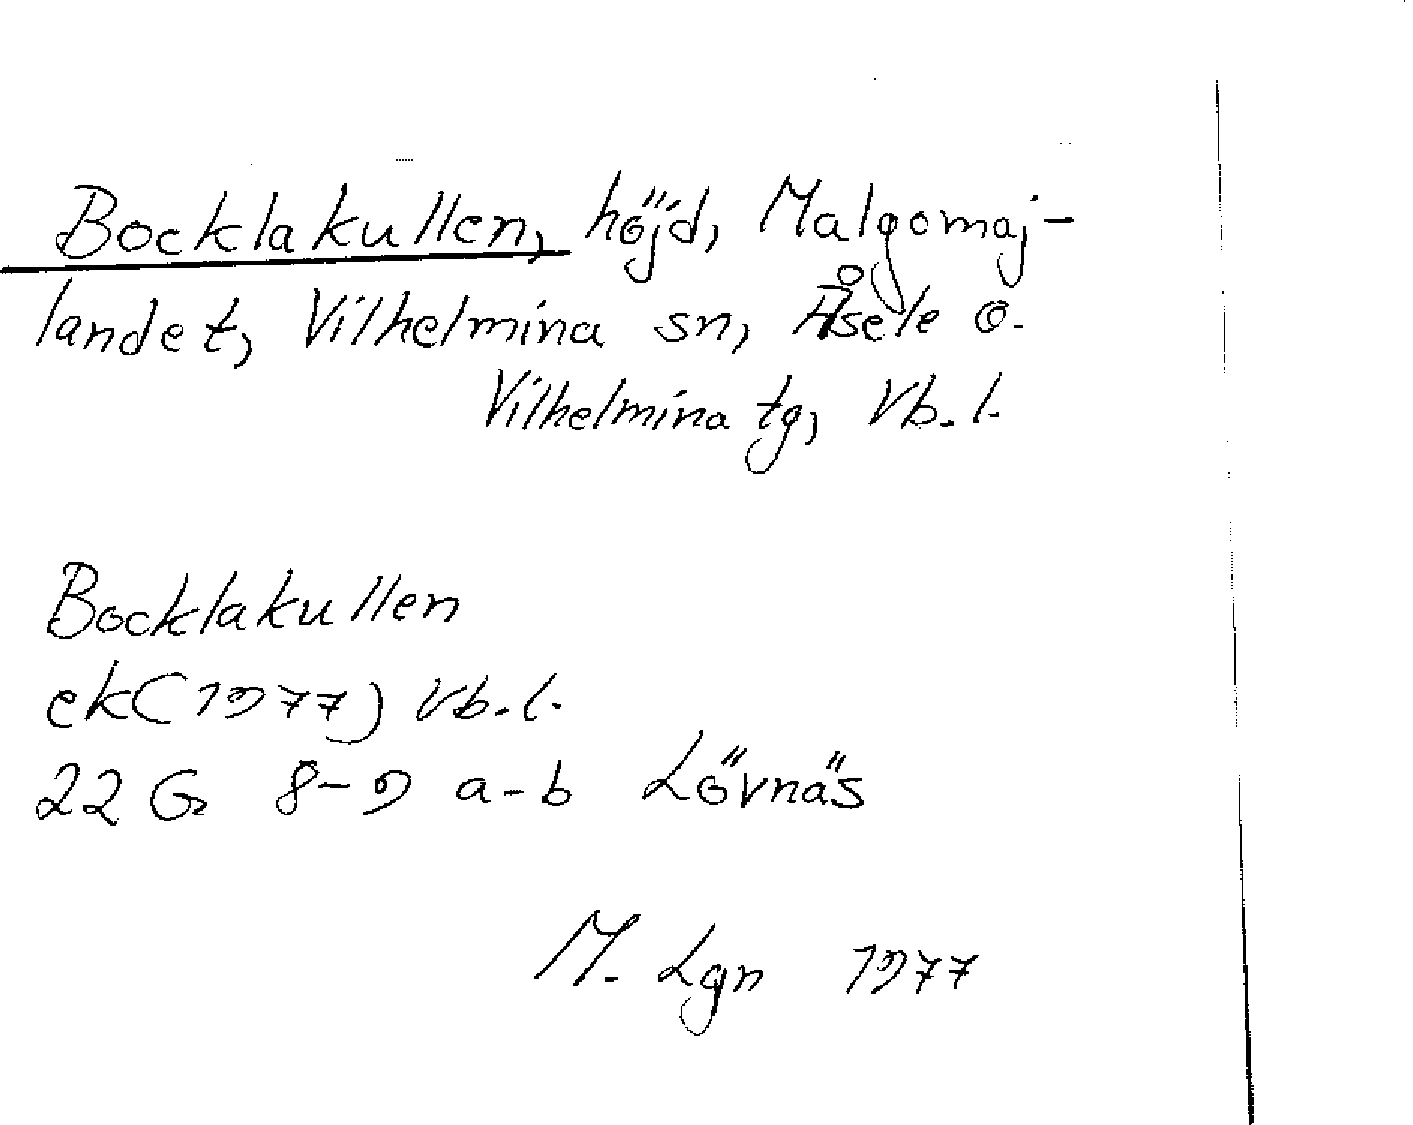 Bocklakullen, höjd, Malgomaj-
landet, Vilhelmina sn, Åsele o.
Vilhelmina tg, Vb. l.
Bocklakullen
ek (1977) Vb. l.
22 G 8-9 a-b Lövnäs
M. Lgn 1977